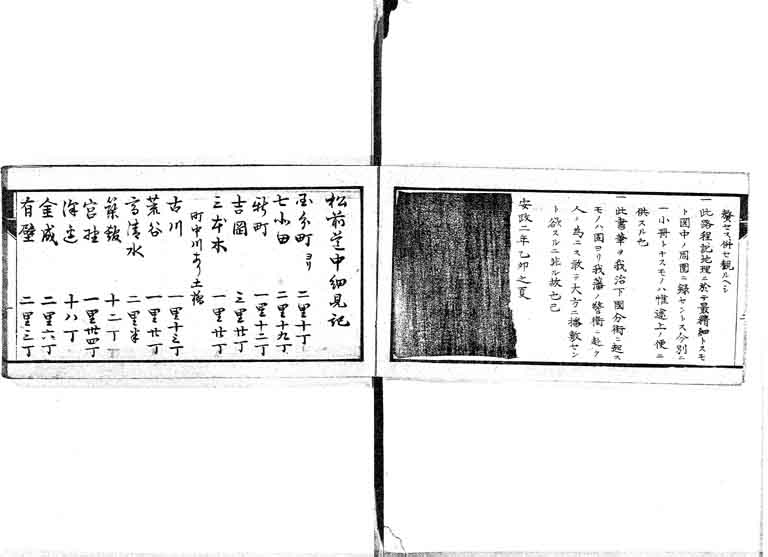 贅セス併セ観ルヘシ
一此路程記地理ニ於テ最精細トスモ
ト図中ノ周囲ニ録セントス今別ニ
一小冊トナスモノハ惟途上ノ便ニ
供スル也
一此書筆ヲ我治下國分街ニ起ス
モノハ國ヨリ我藩ノ警衛ニ赴ク
人ノ為ニス敢テ大方ニ播敷セン
ト欲スルニ非ル故也已
安政二年乙卯之夏
松前道中細見記
国分町ヨリ 二里十丁
七北田 二里十九丁
新町 一里十二丁
吉岡 三里廿丁
三本木 一里廿丁
町中川あり土橋
古川 一里十三丁
荒谷 一里廿丁
高清水 二里半
築館 十二丁
宮野 一里廿四丁
沢辺 十八丁
金成 二里六丁
有壁 二里三丁